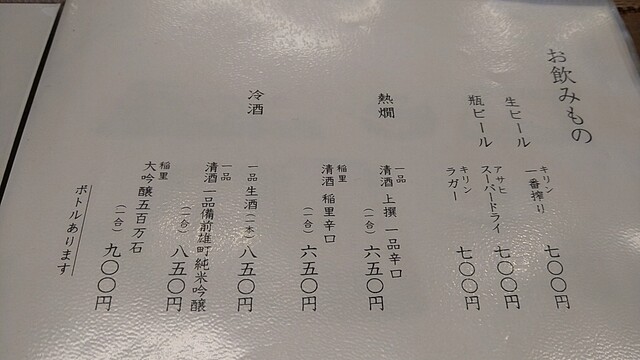 お飲みもの
生ビール キリン 一番搾り 七〇〇円
瓶ビール アサヒ スーパードライ 七〇〇円
キリン ラガー 七〇〇円
熱燗 一品 清酒 上撰 一品辛口 (一合) 六五〇円
稲里 清酒 稲里辛口 (一合) 六五〇円
冷酒 一品 生酒 (一本) 八五〇円
一品 清酒一品備前雄町純米吟醸 (一合) 八五〇円
稲里 大吟醸五百万石 (一合) 九〇〇円
ボトルあります